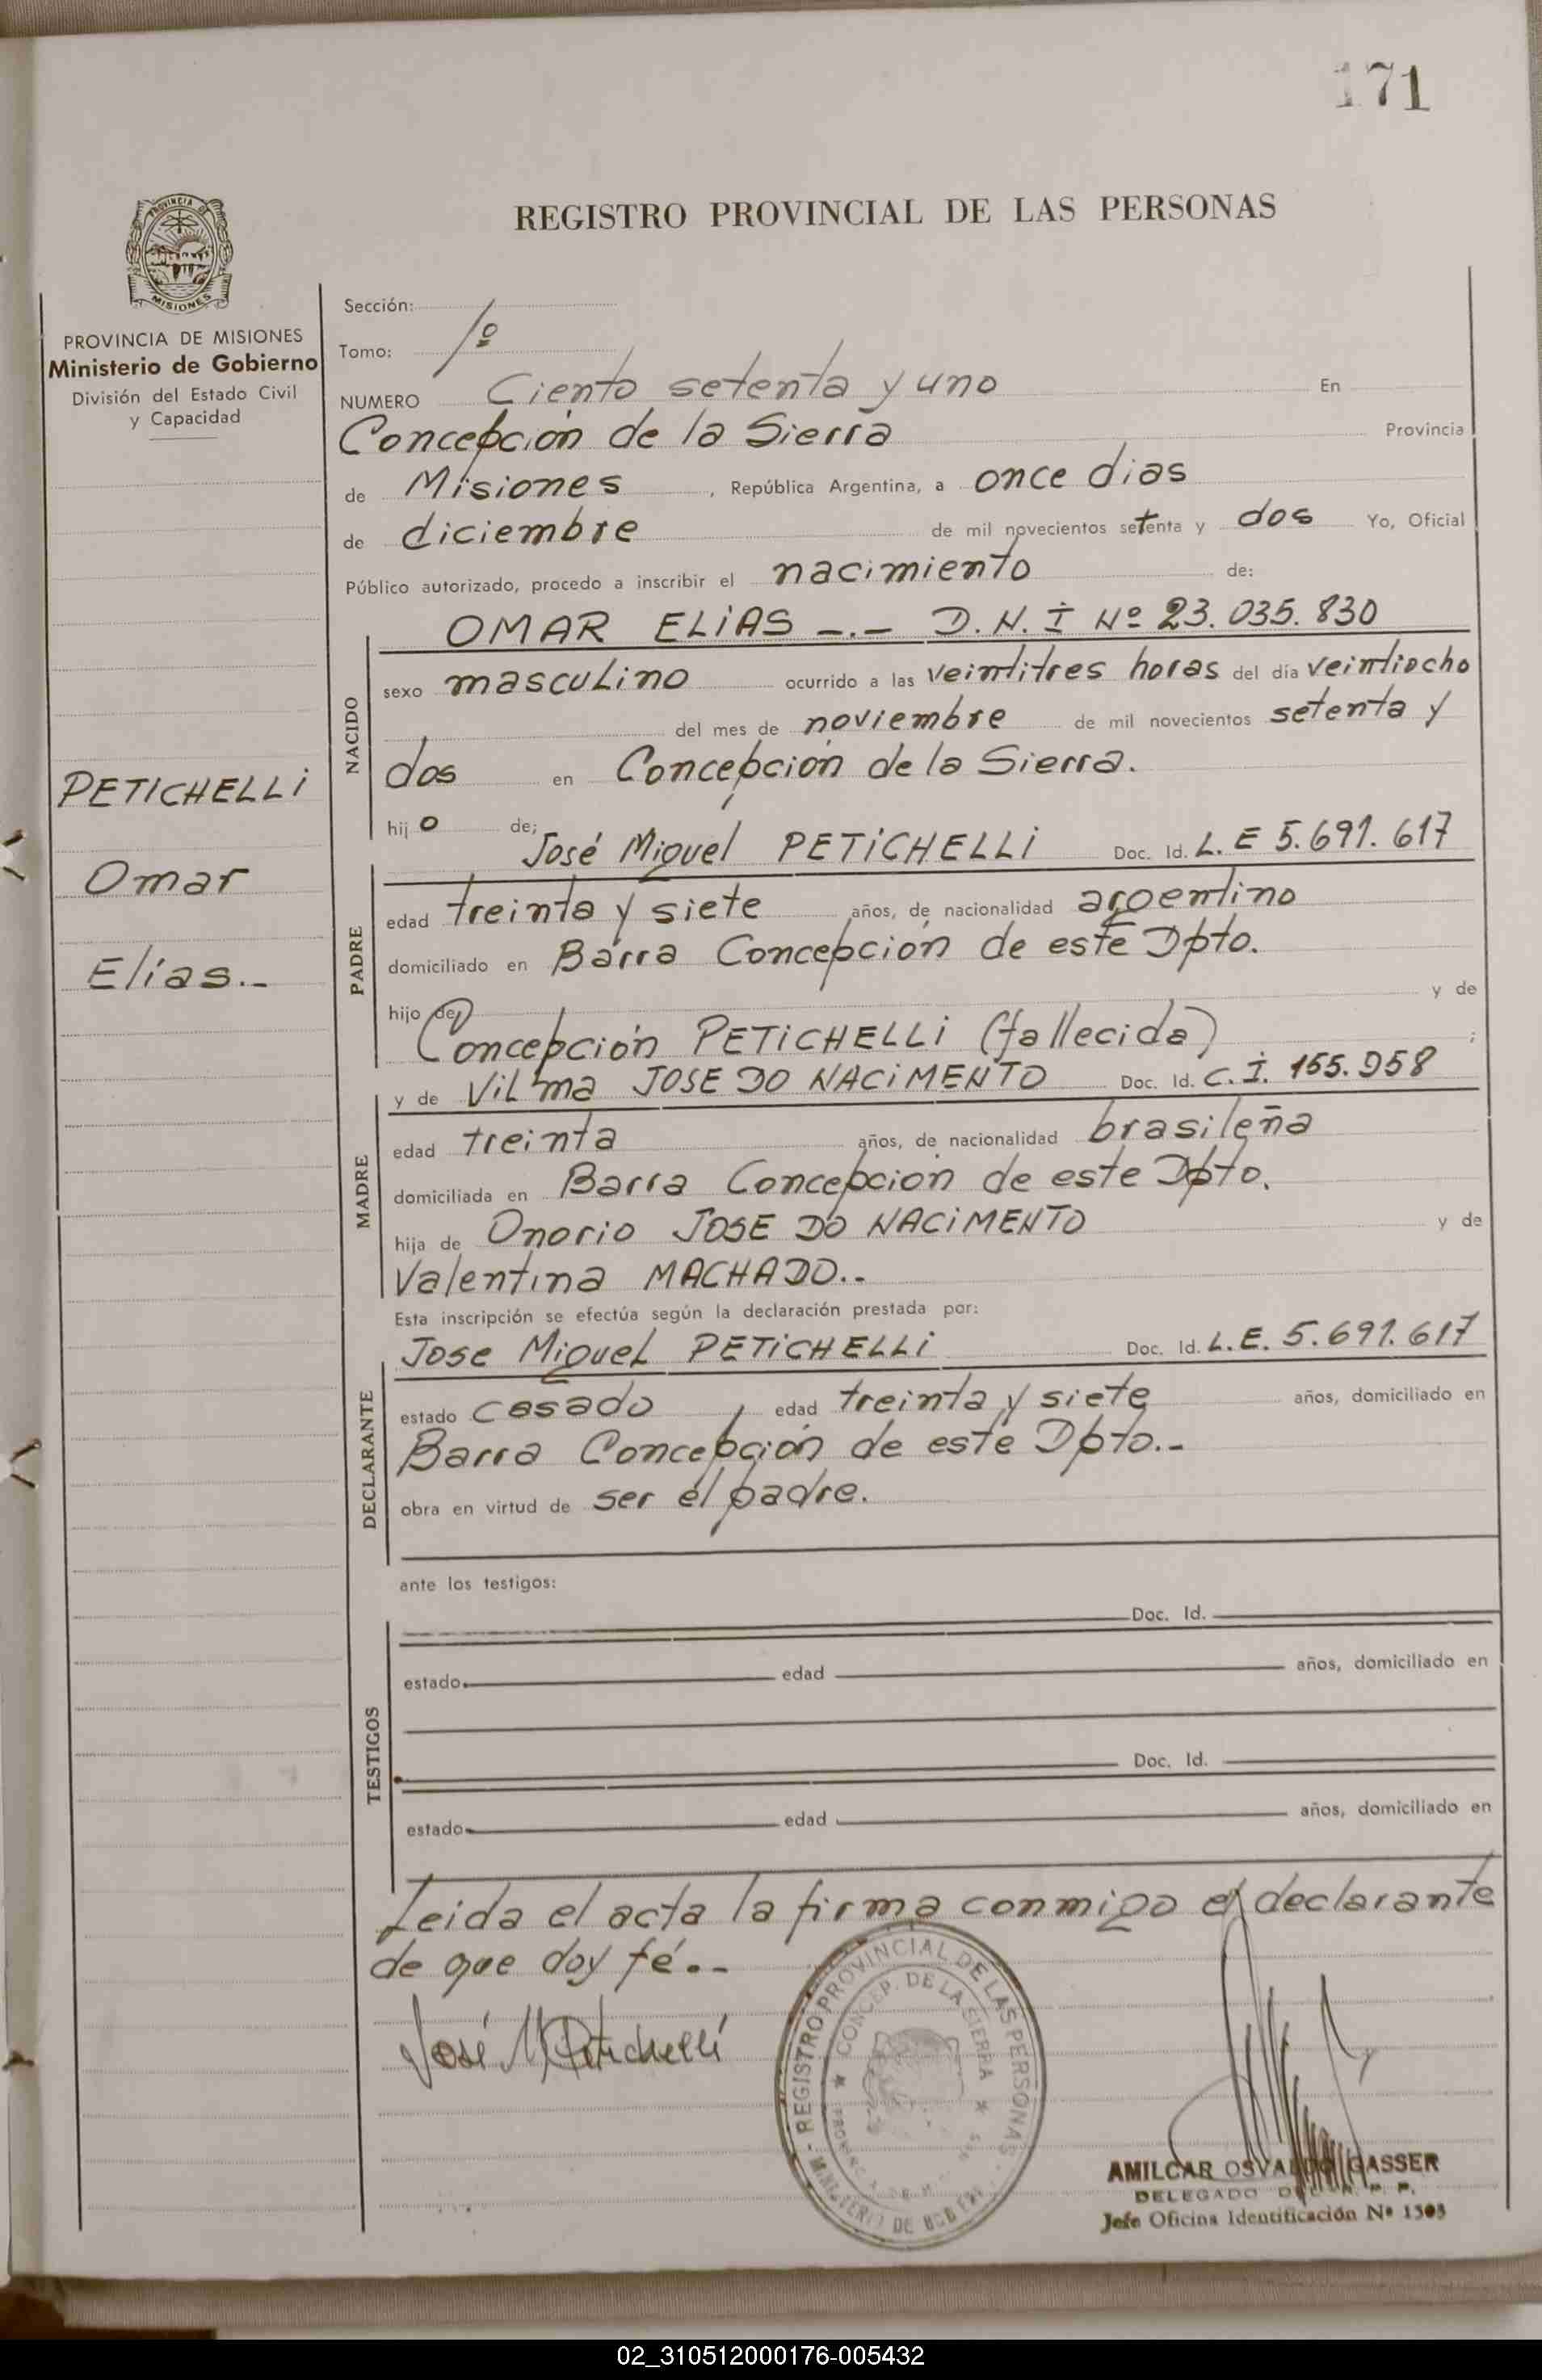 171
PROVINCIA DE
MISIONES
REGISTRO PROVINCIAL DE LAS PERSONAS
PROVINCIA DE MISIONES
Ministerio de Gobierno
División del Estado Civil
y Capacidad
PETICHELLI
Omar
Elías.-
Sección:
Tomo: 1º
NUMERO Ciento setenta y uno En
Concepción de la Sierra Provincia
de Misiones, República Argentina, a once dias
de diciembre de mil novecientos setenta y dos Yo, Oficial
Público autorizado, procedo a inscribir el nacimiento de:
OMAR ELIAS -.- D.N.I Nº 23.035.830
NACIDO
sexo masculino ocurrido a las veintitres horas del día veintiocho
del mes de noviembre de mil novecientos setenta y
dos en Concepción de la Sierra.
hijo de;
José Miguel PETICHELLI Doc. Id. L.E 5.691.617
PADRE
edad treinta y siete años, de nacionalidad argentino
domiciliado en Barra Concepción de este Dpto.
hijo de y de
Concepción PETICHELLI (fallecida) ;
y de Vilma JOSE DO NACIMENTO Doc. Id. C.I. 155.958
MADRE
edad treinta años, de nacionalidad brasileña
domiciliada en Barra Concepción de este Dpto.
hija de Onorio JOSE DO NACIMENTO y de
Valentina MACHADO..
Esta inscripción se efectúa según la declaración prestada por:
Jose Miguel PETICHELLI Doc. Id. L.E. 5.691.617
DECLARANTE
estado casado, edad treinta y siete años, domiciliado en
Barra Concepción de este Dpto.-
obra en virtud de ser el padre.
ante los testigos:
TESTIGOS
Doc. Id.
estado edad años, domiciliado en
Doc. Id.
estado edad años, domiciliado en
Leida el acta la firma conmigo el declarante
de que doy fé.-
José M Petichelli
REGISTRO PROVINCIAL DE LAS PERSONAS
CONCEP. DE LA SIERRA
AMILCAR OSVALDO GASSER
DELEGADO DEL R. P. P.
Jefe Oficina Identificación Nº 1503
02_310512000176-005432